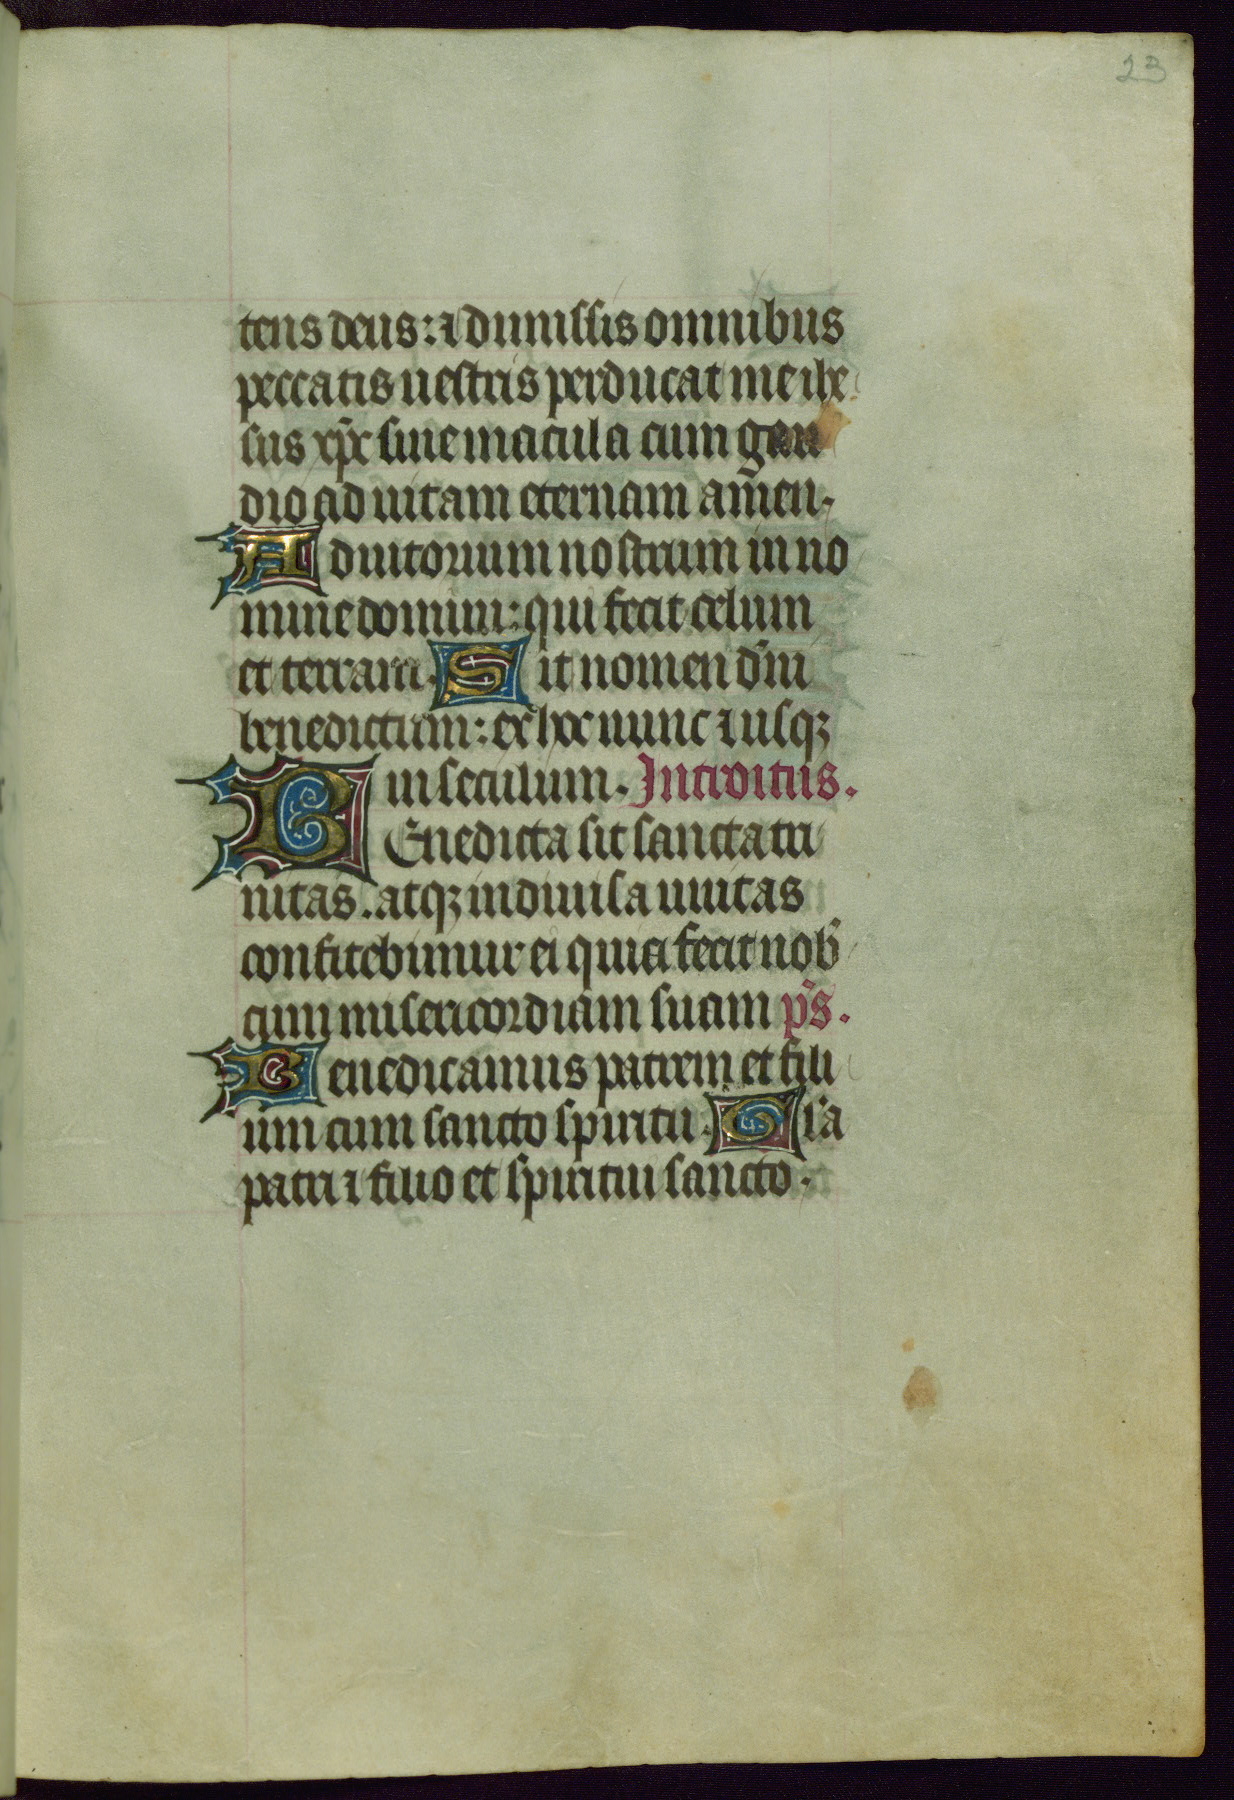 23
tens deus: ⁊ dimissis omnibus
peccatis uestris perducat me ihe
sus xp̄c sine macula cum gau
dio ad uitam eternam amen.
Adiutorium nostrum in no
mine domini: qui fecit celum
et terram. Sit nomen dn̄i
benedictum: ex hoc nunc ⁊ usqꝫ
in seculum. Introitus.
BEnedicta sit sancta tri
nitas. atqꝫ indiuisa unitas
confitebimur ei quia fecit nob̄
cum misericordiam suam p̄s.
Benedicamus patrem et fili
um cum sancto spiritu. Gl̓a
patri ⁊ filio et spiritui sancto.